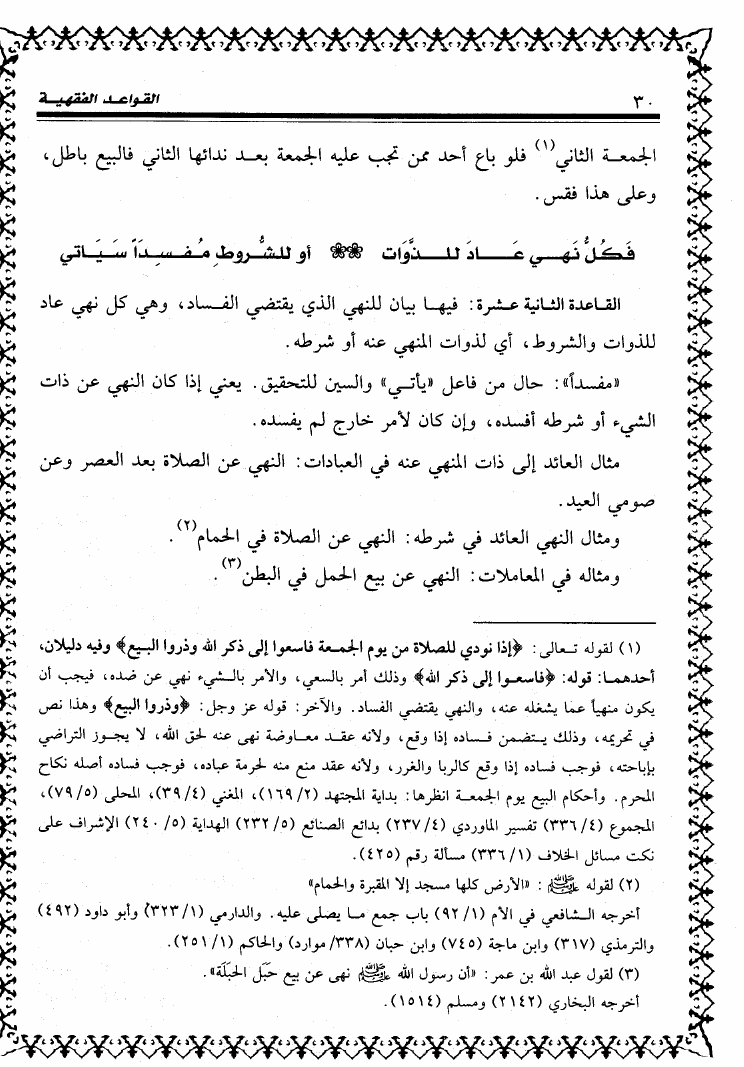 ٣٠ القواعد الفقهية
الجمعة الثاني(١) فلو باع أحد ممن تجب عليه الجمعة بعد ندائها الثاني فالبيع باطل،
وعلى هذا فقس.
فَكلُّ نَهــي عَـــادَ للــــذَّوَات ❀❀ أو للشُّــروطِ مُـفــسِـداً سَـيَـاتي
القـاعدة الثـانية عـشـرة: فيهـا بيان للنهي الذي يقتضي الفـساد، وهي كل نهي عاد
للذوات والشروط، أي لذوات المنهي عنه أو شرطه.
«مفسداً»: حال من فاعل «يأتـي» والسين للتحقيق. يعني إذا كان النهي عن ذات
الشيء أو شرطه أفسده، وإن كان لأمر خارج لم يفسده.
مثال العائد إلى ذات المنهي عنه في العبادات: النهي عن الصلاة بعد العصر وعن
صومي العيد.
ومثال النهي العائد في شرطه: النهي عن الصلاة في الحمام(٢).
ومثاله في المعاملات: النهي عن بيع الحمل في البطن(٣).
(١) لقوله تـعالى: ﴿إذا نودي للصلاة من يوم الجمعة فاسعوا إلى ذكر الله وذروا البـيع﴾ وفيه دليلان،
أحدهمـا: قوله: ﴿فاسعـوا إلى ذكر الله﴾ وذلك أمر بالسعي، والأمر بالـشيء نهي عن ضده، فيجب أن
يكون منهياً عما يشغله عنه، والنهي يقتضي الفساد. والآخر: قوله عز وجل: ﴿وذروا البيع﴾ وهذا نص
في تحريمه، وذلك يـتضمن فـساده إذا وقع، ولأنه عقـد معـاوضة نهى عنه لحق الله، لا يجـوز التراضي
بإباحته، فوجب فساده إذا وقع كالربا والغرر، ولأنه عقد منع منه لحرمة عباده، فوجب فساده أصله نكاح
المحرم. وأحكام البيع يوم الجمعـة انظرها: بداية المجتهد (١٦٩/٢)، المغني (٣٩/٤)، المحلى (٧٩/٥)،
المجموع (٣٣٦/٤) تفسير الماوردي (٢٣٧/٤) بدائع الصنائع (٢٣٢/٥) الهداية (٢٤٠/٥) الإشراف على
نكت مسائل الخلاف (٣٣٦/١) مسألة رقم (٤٢٥).
(٢) لقوله ﷺ: «الأرض كلها مسجد إلا المقبرة والحمام»
أخرجه الـشافعي في الأم (٩٢/١) باب جمع مـا يصلى عليه. والدارمي (٣٢٣/١) وأبو داود (٤٩٢)
والترمذي (٣١٧) وابن ماجة (٧٤٥) وابن حبان (٣٣٨/ موارد) والحاكم (٢٥١/١).
(٣) لقول عبد الله بن عمر: «أن رسول الله ﷺ نهى عن بيع حَبَل الحَبَلَة».
أخرجه البخاري (٢١٤٢) ومسلم (١٥١٤).